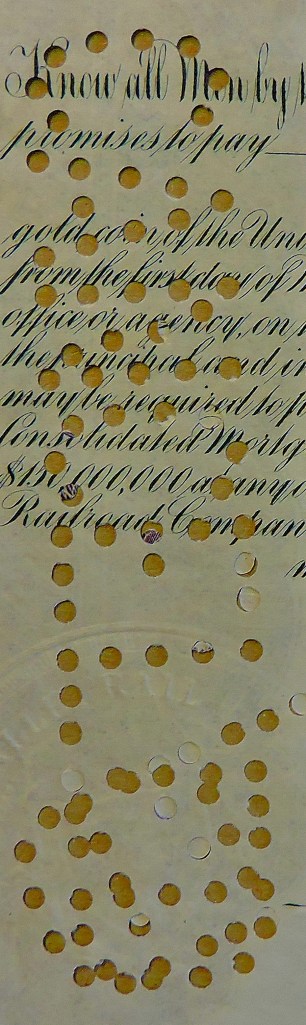 Know all Men by
promises to pay
gold coin of the Uni
from the first day of
office or agency, on
the principal and in
may be required to
Consolidated Mortg
$150,000,000 as any
Railroad Compan